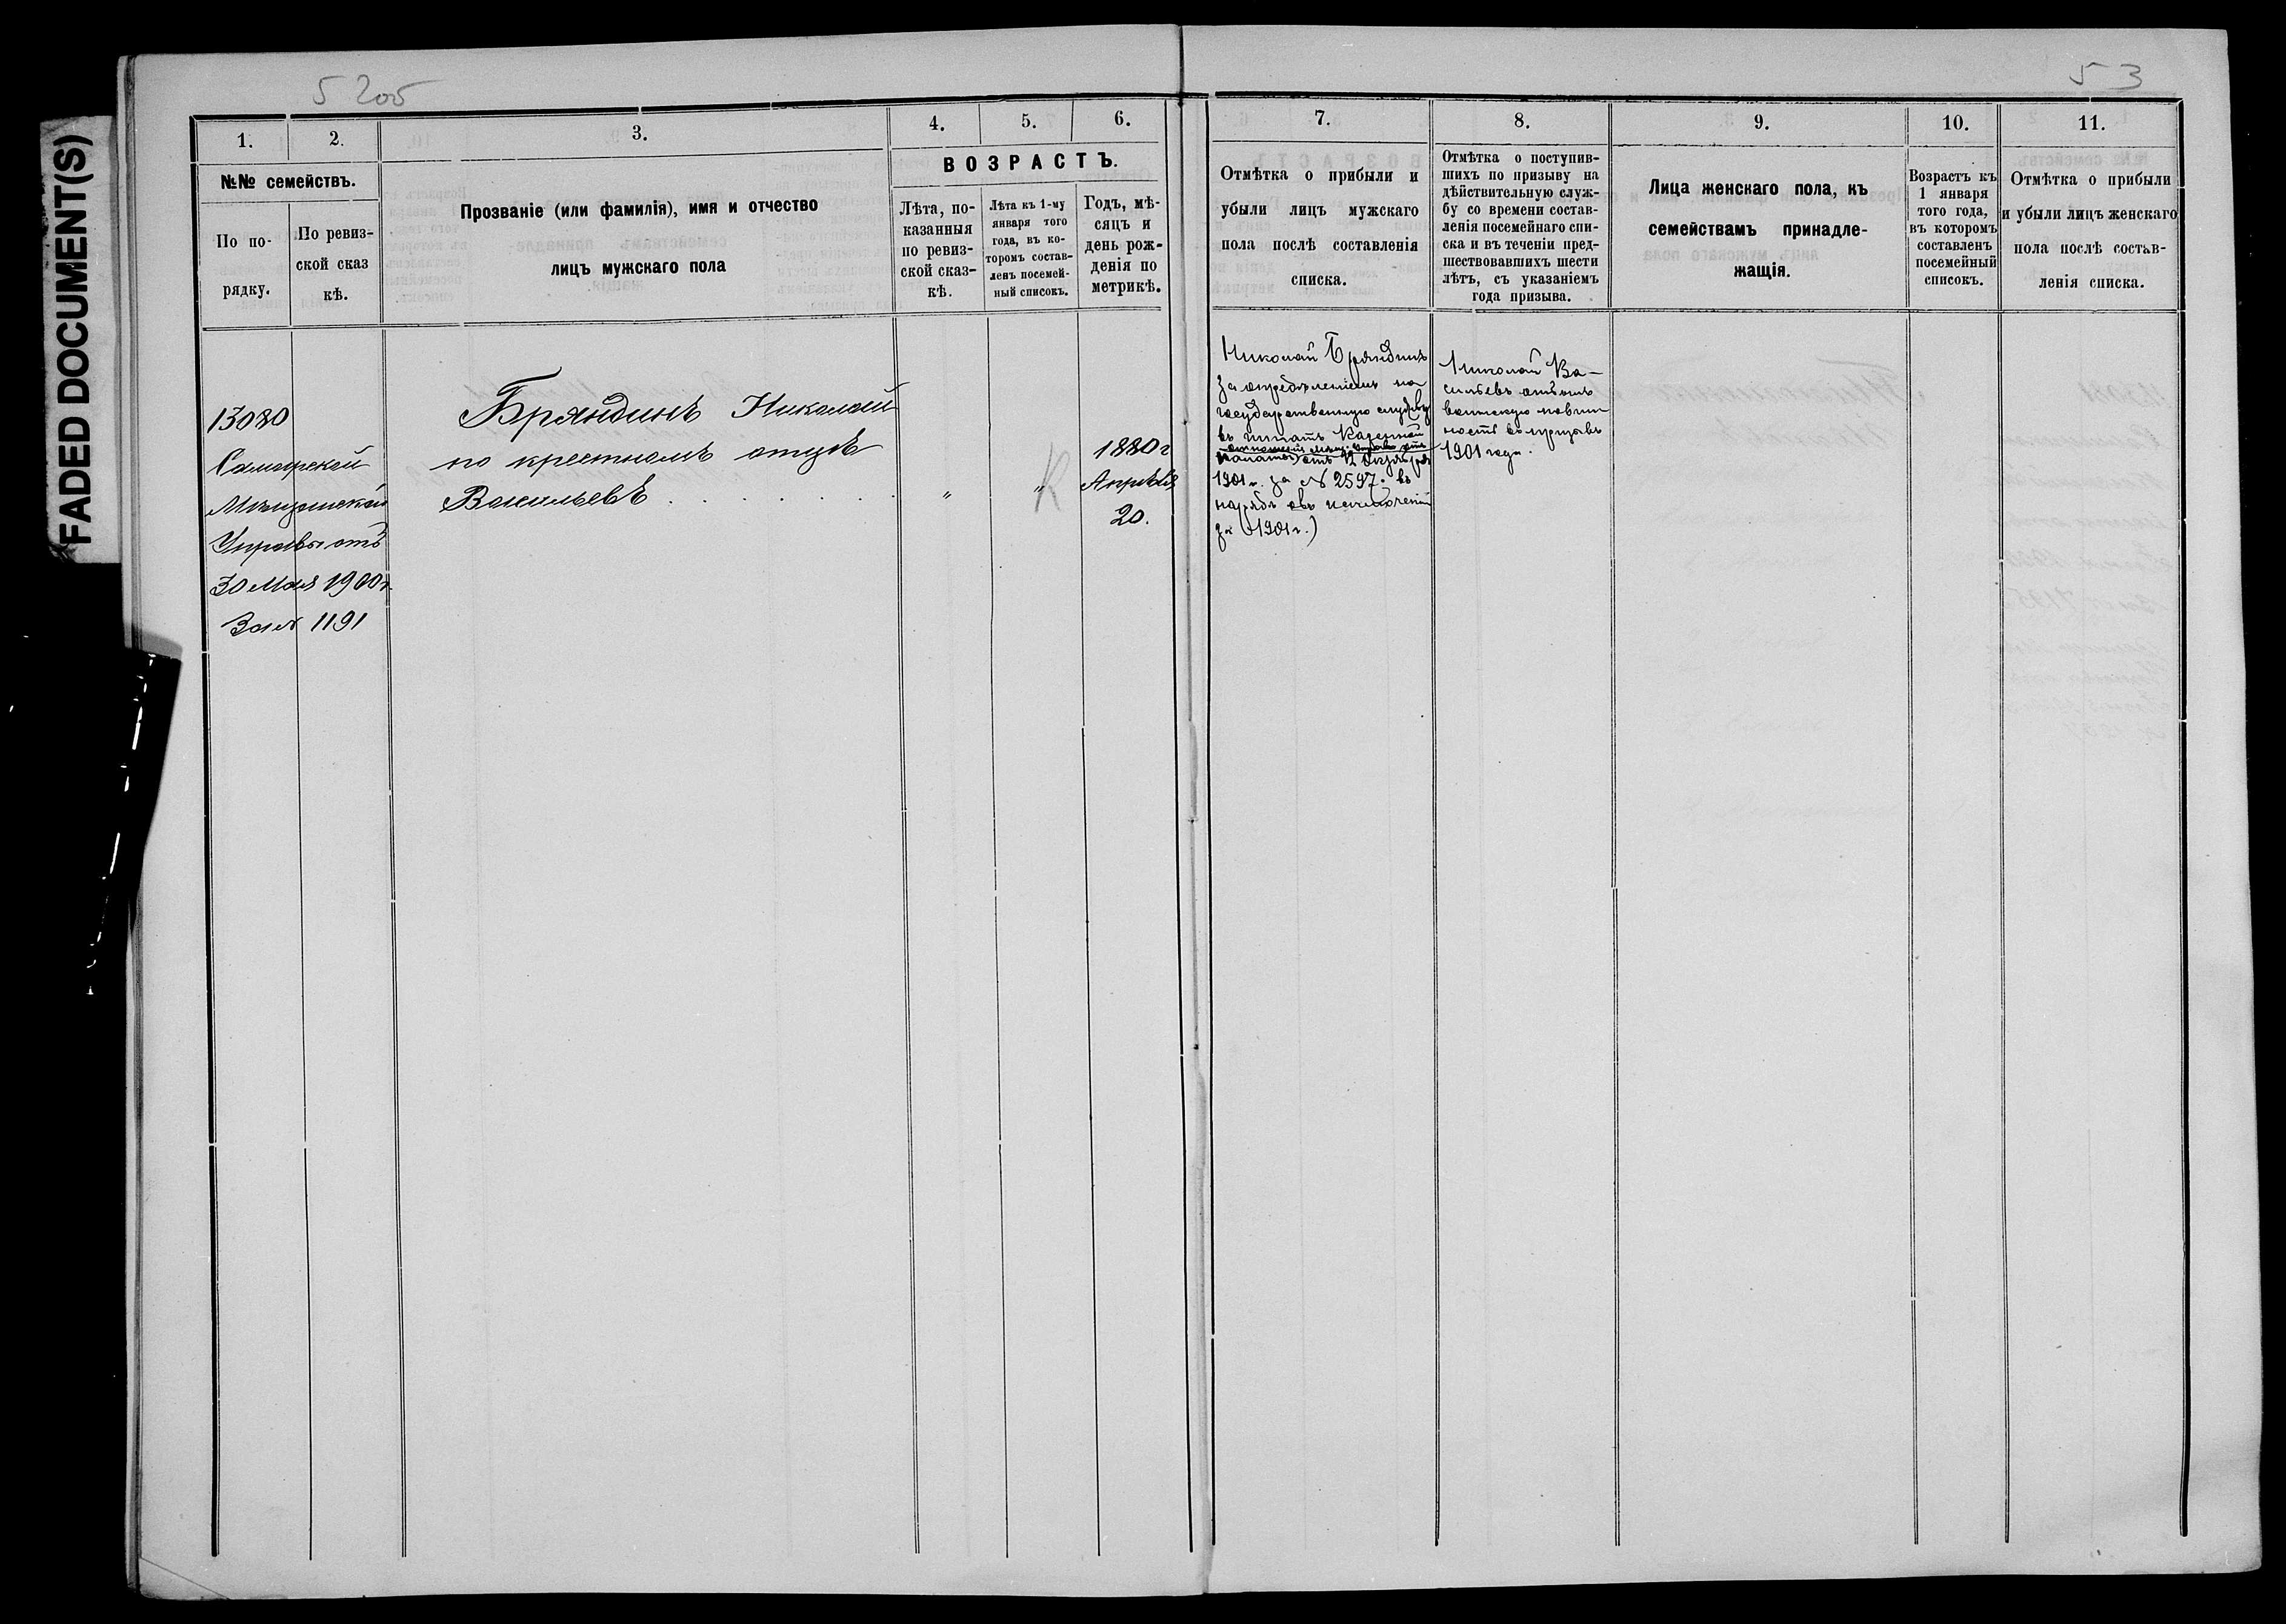 FADED DOCUMENT(S)
5 205
53
1.
2.
3.
4.
5.
6.
№№ семействъ.
По по-
рядку.
По ревиз-
ской сказ
кѣ.
Прозваніе (или фамилія), имя и отчество
лицъ мужскаго пола
ВОЗРАСТЪ.
Лѣта, по-
казанныя
по ревиз-
ской сказ-
кѣ.
Лѣта къ 1-му
января того
года, въ ко-
торомъ состав-
ленъ посемей-
ный списокъ.
Годъ, мѣ-
сяцъ и
день рож-
денія по
метрикѣ.
13080
Самарской
Мѣщанской
Управы отъ
30 Мая 1900 г.
За № 1191
Бряндинъ Николай
по крестномъ отцѣ
Васильевъ
"
"
1880 г
Апрѣля
20.
7.
8.
9.
10.
11.
Отмѣтка о прибыли и
убыли лицъ мужскаго
пола послѣ составленія
списка.
Отмѣтка о поступив-
шихъ по призыву на
дѣйствительную служ-
бу со времени состав-
ленія посемейнаго спи-
ска и въ теченіи пред-
шествовавшихъ шести
лѣтъ, съ указаніемъ
года призыва.
Лица женскаго пола, къ
семействамъ принадле-
жащія.
Возрастъ къ
1 января
того года,
въ которомъ
составленъ
посемейный
списокъ.
Отмѣтка о прибыли
и убыли лицъ женскаго
пола послѣ состав-
ленія списка.
Николай Бряндинъ
за опредѣленіемъ на
государственную службу
въ штатъ Казенной
отношеніе Мѣщ. Управы отъ
Палаты) отъ 12 Октября
1901 г. за № 2597. въ
нарядѣ объ исключеніи
за 1901 г.)
Николай Ва-
сильевъ отбылъ
воинскую повин
ность въ призывъ
1901 года.